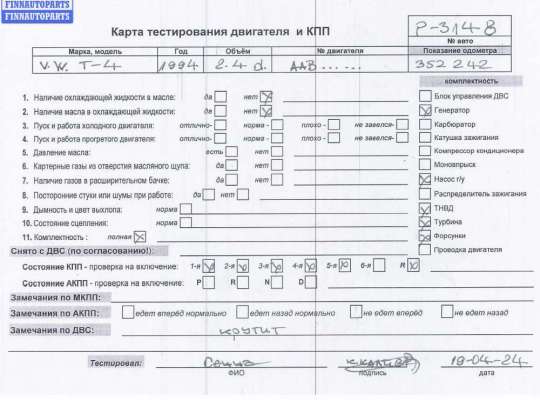 FINNAUTOPARTS
FINNAUTOPARTS
Карта тестирования двигателя и КПП
P-3148
№ авто
Марка, модель Год Объём № двигателя Показание одометра
V.W. T-4 1994 2.4 d. AAB...... 352 242
комплектность
1. Наличие охлаждающей жидкости в масле: да нет
2. Наличие масла в охлаждающей жидкости: да нет
3. Пуск и работа холодного двигателя: отлично- норма - плохо - не завелся-
4. Пуск и работа прогретого двигателя: отлично- норма - плохо - не завелся-
5. Давление масла: есть нет
6. Картерные газы из отверстия масляного щупа: да нет
7. Наличие газов в расширительном бачке: да нет
8. Посторонние стуки или шумы при работе: да нет
9. Дымность и цвет выхлопа: норма
10. Состояние сцепления: норма
11. Комплектность : полная
Блок управления ДВС
Генератор
Карбюратор
Катушка зажигания
Компрессор кондиционера
Моновпрыск
Насос г/у
Распределитель зажигания
ТНВД
Турбина
Форсунки
Проводка двигателя
Снято с ДВС (по согласованию!):
Состояние КПП - проверка на включение: 1-я 2-я 3-я 4-я 5-я 6-я R
Состояние АКПП - проверка на включение: P R N D
Замечания по МКПП:
Замечания по АКПП: едет вперёд нормально едет назад нормально не едет вперёд не едет назад
Замечания по ДВС: крутит
Тестировал: 19-04-24
ФИО подпись дата